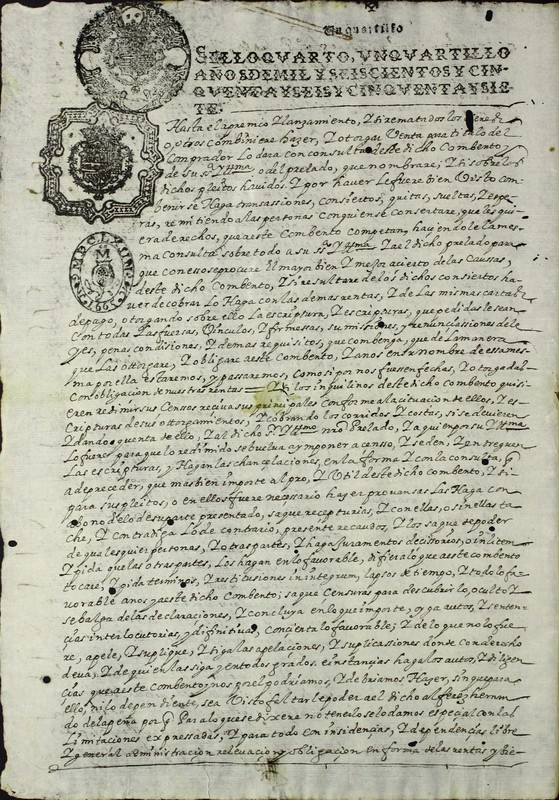 Un quartillo
SELLO QVARTO, VN QVARTILLO
AÑOS DE MIL Y SEISCIENTOS Y CIN-
QVENTA Y SEIS Y CINQVENTA Y SIE-
TE.
Hasta el apremio Y lançamiento, Y si rematados los
Combiniere hazer, Y otorgar Venta
Comprador Lo dara con consulta deste dicho Combento
de su Yllma, o del prelado, que nombrare; Y si sobre los
dichos pleitos hauidos. Y por hauer Le fuere bien Visto com
benir se Haga transsasiones, consiertos, quitas, sueltas, Y espe
ras, remitiendo a las personas con quien se consertare, que les qui
era derechos, que a este Combento competan, haziendole la mes
ma Consulta sobre todo a su Yllma Y a el dicho prelado para
que con eso se procure el mayor bien Y mejor acierto de las Causas,
de este dicho Combento, Y si resultare de los dichos consiertos ha
uer de cobrar Lo Haga con las demas rentas, Y de Las mismas cartas
de pago, otorgando sobre ello La escriptura, Y escripturas, que pedidas le sean
Con todas Las fuersas, Vinculos, Y firmesas, sumisiones, Y renunsiasiones de le
yes, penas condisiones, Y demas requisitos, que combenga, que de La manera
que Las otorgare, Y obligare a este Combento, Y a nos en su nombre de essa mes
ma por ella estaremos, y passaremos, como si por nos fuesen fechas, Y otorgadas
Con obligasion de nuestras rentas — Y si los inquilinos deste dicho combento quisi
eren redimir sus Censos reciua sus principales conforme a la cituacion de ellos, Y es
cripturas de sus otorgamientos, Y cobrando los corridos Y costas, si se deuieren
Y dando quenta de ello, Y a el dicho Prelado, Y a quien por su Yllma
Lo fuere para que lo redimido se buelua a ymponer a censo, Y se den, Y entreguen
Las escripturas, Y Hagan las chancelaciones, en la forma Y con la consulta, q
a de preceder, que mas bien importe al pro, Y Util deste dicho combento, Y si
para sus pleitos, o en ellos fuere nesesario hazer prouansas Las Haga con
abono de lo de su parte presentado, saque recepturias, Y con ellas, o sin ellas ta
che, Y contradiga Lo de contrario, presente recaudos, Y los saque de poder
de qualesquier personas, Y otras partes, Y haga Juramentos decisorios, o in litem
Y pida que las otras partes, Los hagan en lo favorable, difieralo que a este combento
tocare, Y pida terminos, Y restituciones in integrum, lapsos de tiempo, Y todo lo fa
uorable a nos y a este dicho Combento; saque Censuras para descubrir lo oculto Y
se balga de las declaraciones, Y concluya en lo que importe, oyga autos, Y senten
çias interlocutorias, Y difinitiuas, consienta lo favorable; Y de lo que no lo fue
re, apele, Y suplique, Y siga las apelaciones, Y suplicassiones donde con derecho
deua, Y de quien las siga Y en todos grados, e instançias haga los autos, Y diligen
cias que a este combento Y nos por el podriamos, Y deberiamos Hazer, sin que para
ello, ni lo dependiente, sea Visto faltarle poder a el dicho
de la peña por q Para lo que se dixere no tenerlo se lo damos especial con las
Limitaciones expressadas, Y para todo con insidencias, Y dependencias libre
Y general administracion relevacion y obligacion en forma de las rentas y bie